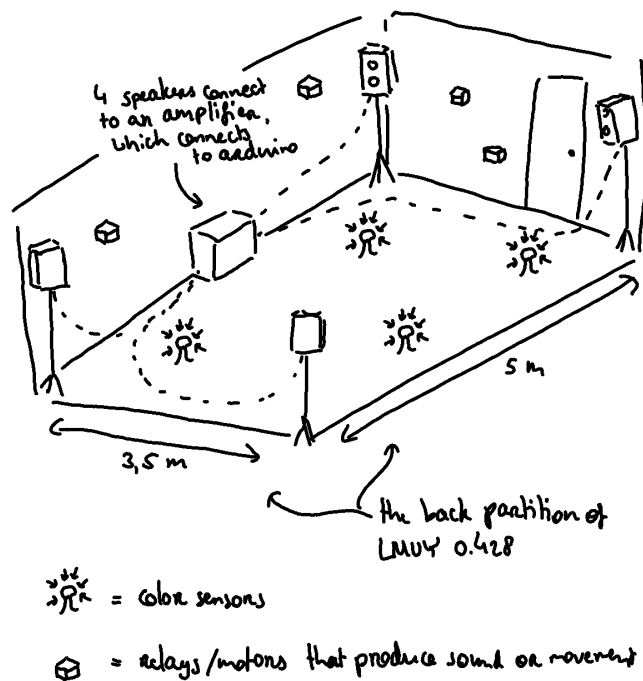 4 speakers connect
to an amplifier,
which connects
to arduino
5 m
3,5 m
the back partition of
LMUY 0.428
= color sensors
= relays/motors that produce sound or movement